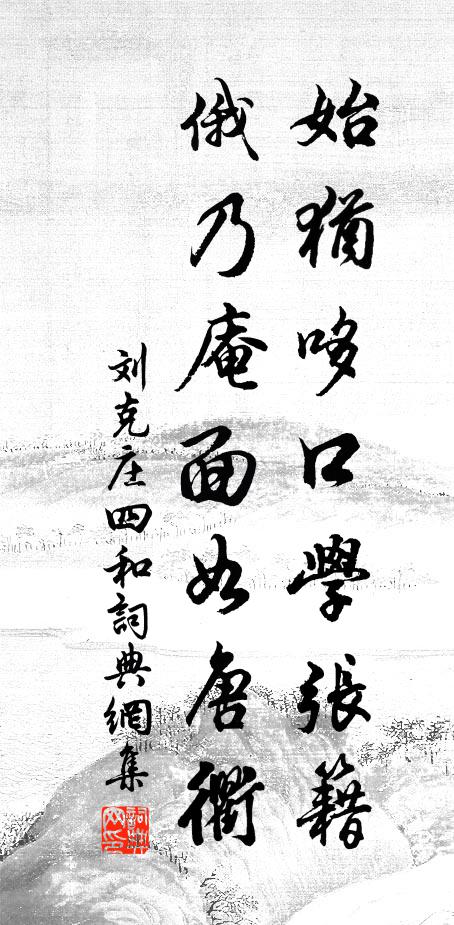 始猶哆口學張籍
俄乃庵面如唐衢
刘克庄四和詞典網集